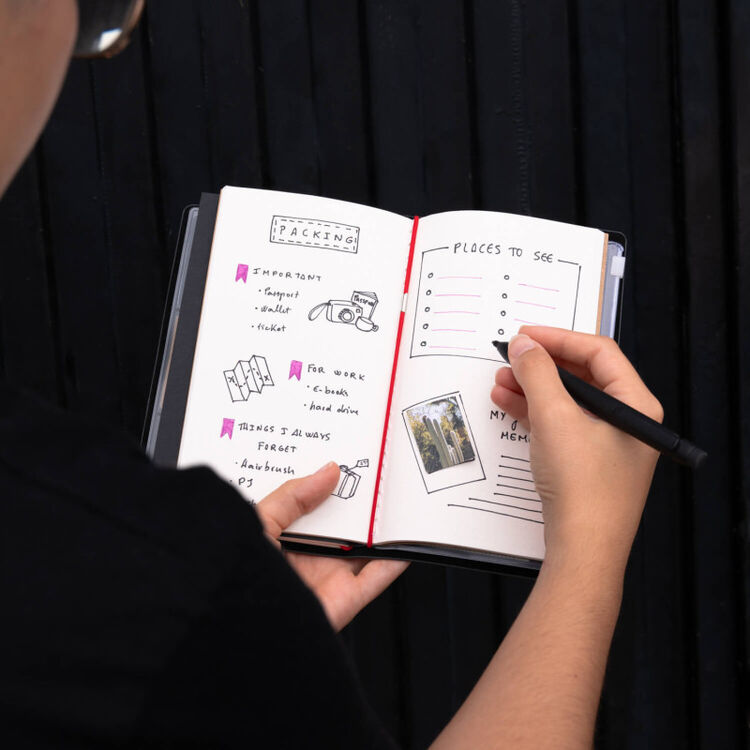 PACKING
IMPORTANT
• Passport
• Wallet
• ticket
PASSPORT
FOR WORK
• E-books
• hard drive
THINGS I ALWAYS
FORGET
• Hairbrush
• PJ
PLACES TO SEE
MY
MEMO